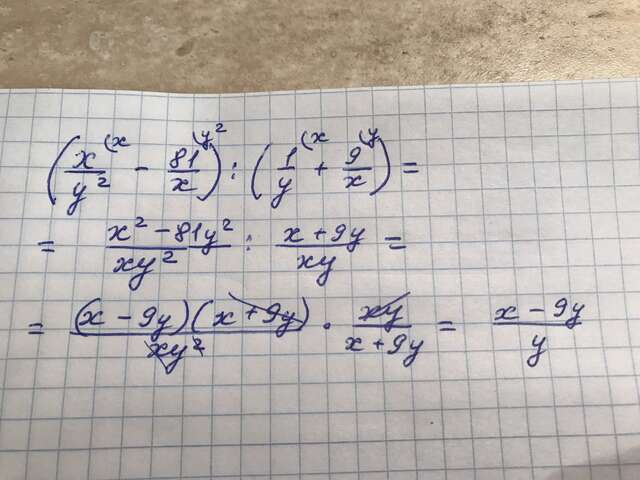 (x/y² ⁽ˣ - 81/x ⁽ʸ²) : (1/y ⁽ˣ + 9/x ⁽ʸ) =
= x² - 81y²/xy² : x + 9y/xy =
= (x - 9y)(x + 9y)/xy² · xy/x + 9y = x - 9y/y